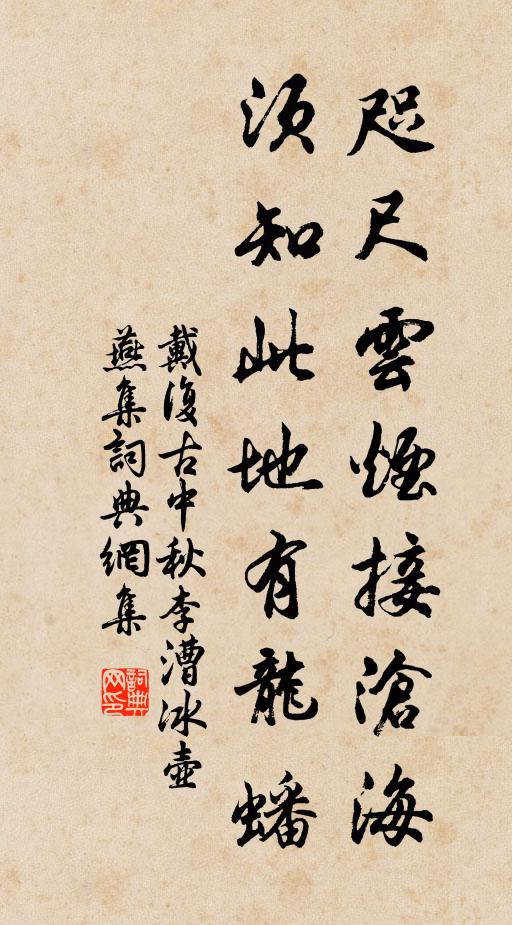 咫尺雲煙接滄海
須知此地有龍蟠
戴復古中秋李漕冰壺
燕集詞典網集
詞典網印